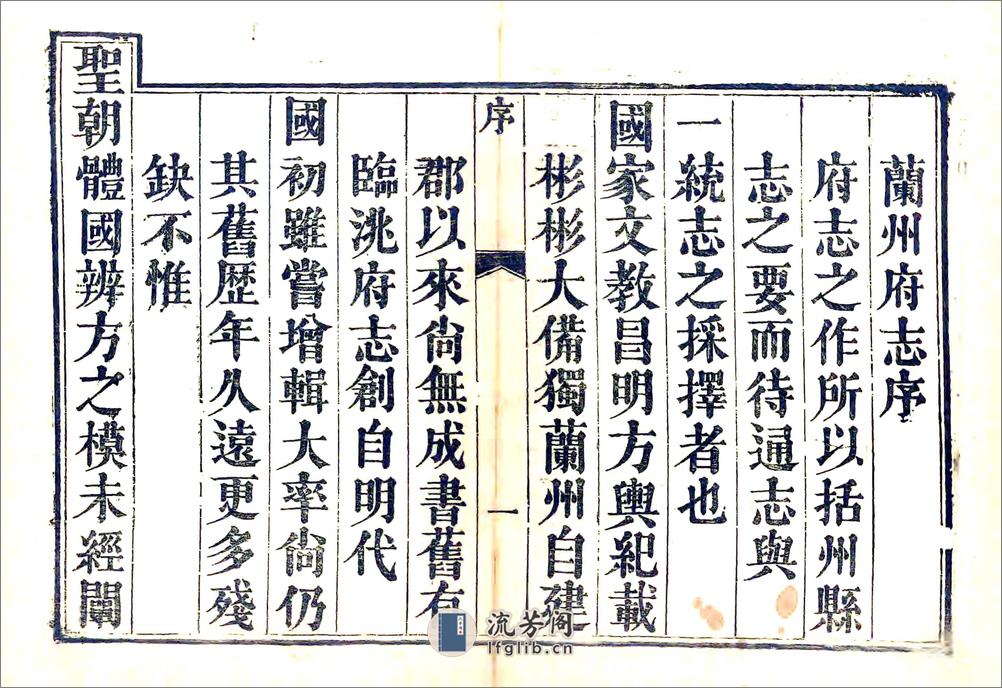 蘭州府志序
府志之作所以括州縣
志之要而待通志與
一統志之採擇者也
國家文教昌明方輿紀載
彬彬大備獨蘭州自建
序
一
郡以來尚無成書舊有
臨洮府志創自明代
國初雖嘗增輯大率尚仍
其舊歴年久遠更多殘
缺不惟
聖朝體國辨方之模未經闡
流芳阁
lfglib.cn